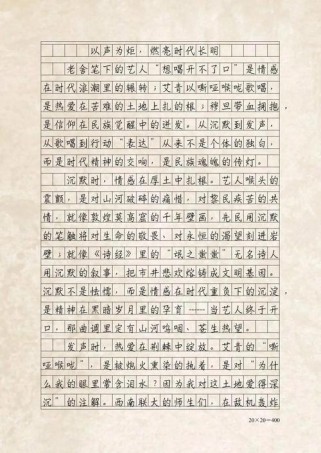 以声为炬，燃亮时代长明
老舍笔下的艺人“想唱开不了口”是情感
在时代浪潮里的辗转；艾青以嘶哑喉咙歌唱，
是热爱在苦难的土地上扎的根；穆旦带血拥抱，
是信仰在民族觉醒中的迸发。从沉默到发声，
从歌唱到行动“表达”从来不是个体的独白，
而是时代精神的交响，是民族魂魄的传灯。
沉默时，情感在厚土中扎根。艺人喉头的
震颤，是对山河破碎的痛惜，对黎民疾苦的共
情，就像敦煌莫高窟的千年壁画，先民用沉默
的笔触将对生命的敬畏，对永恒的渴望刻进岩
壁；就像《诗经》里的“氓之蚩蚩”无名诗人
用沉默的叙事，把市井悲欢熔铸成文明基因。
沉默不是怯懦，而是情感在时代重负下的沉淀，
是精神在黑暗岁月里的孕育——当艺人终于开
口，那曲调里定有山河呜咽、苍生热望。
发声时，热爱在荆棘中绽放。艾青的“嘶
哑喉咙”，是被炮火熏染的执着，是对“为什
么我的眼里常含泪水？因为我对这土地爱得深
沉”的注解。西南联大的师生们，在敌机轰炸
20×20=400